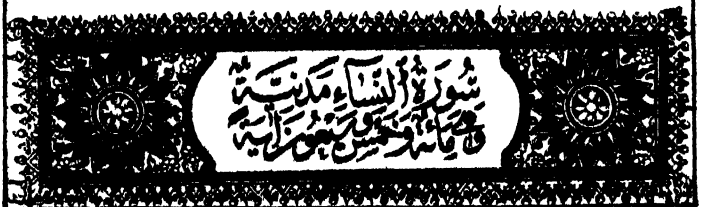 سُورَةُ ٱلنِّسَاءِ مَدَنِيَّةٌ
وَهِيَ مِائَةٌ وَخَمْسٌ وَسَبْعُونَ آيَةً